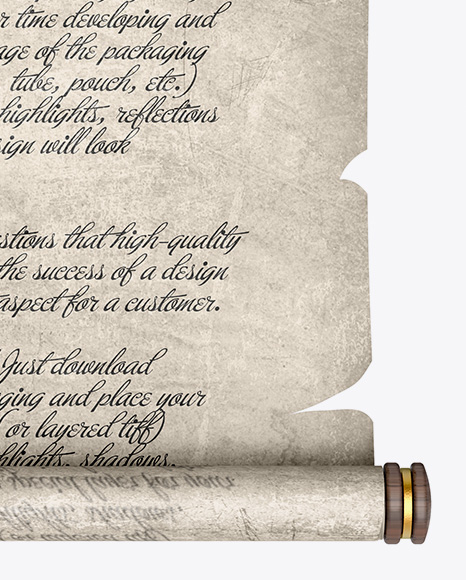 r time developing and
age of the packaging
tube, pouch, etc.)
highlights, reflections
sign will look
stions that high-quality
the success of a design
aspect for a customer.
Just download
ging and place your
(or layered tiff)
hlights, shadows,
special layer for your